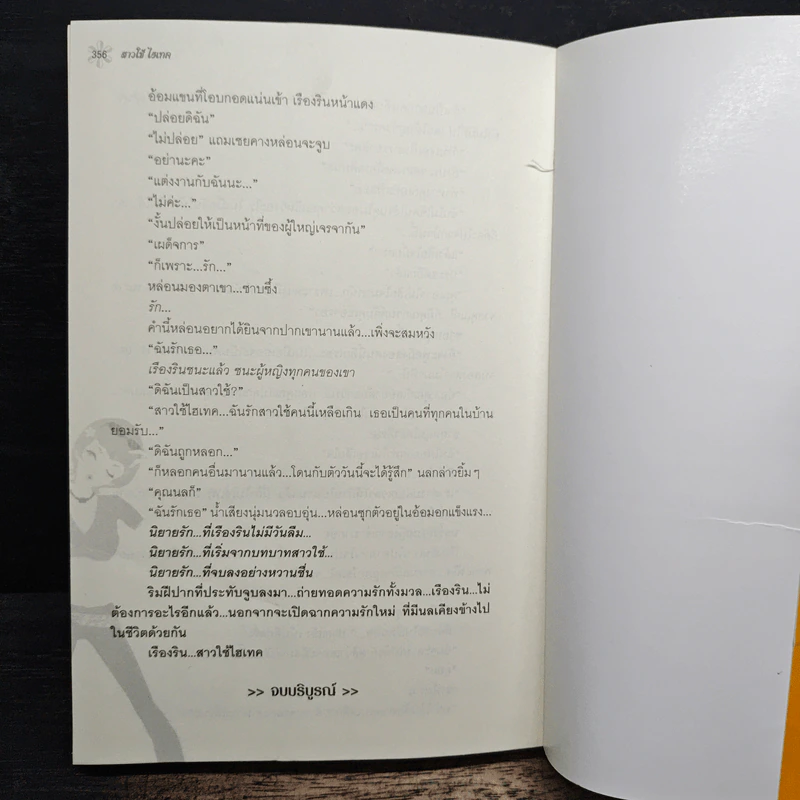 356 สาวใช้ ไฮเทค
อ้อมแขนที่โอบกอดแน่นเข้า เรืองรินหน้าแดง
“ปล่อยดิฉัน”
“ไม่ปล่อย” แถมเชยคางหล่อนจะจูบ
“อย่านะคะ”
“แต่งงานกับฉันนะ...”
“ไม่ค่ะ...”
“งั้นปล่อยให้เป็นหน้าที่ของผู้ใหญ่เจรจากัน”
“เผด็จการ”
“ก็เพราะ...รัก...”
หล่อนมองตาเขา...ซาบซึ้ง
รัก...
คำนี้หล่อนอยากได้ยินจากปากเขานานแล้ว...เพิ่งจะสมหวัง
“ฉันรักเธอ...”
เรืองรินชนะแล้ว ชนะผู้หญิงทุกคนของเขา
“ดิฉันเป็นสาวใช้?”
“สาวใช้ไฮเทค...ฉันรักสาวใช้คนนี้เหลือเกิน เธอเป็นคนที่ทุกคนในบ้าน
ยอมรับ...”
“ดิฉันถูกหลอก...”
“ก็หลอกคนอื่นมานานแล้ว...โดนกับตัววันนี้จะได้รู้สึก” นลกล่าวยิ้มๆ
“คุณนลก็”
“ฉันรักเธอ” น้ำเสียงนุ่มนวลอบอุ่น...หล่อนซุกตัวอยู่ในอ้อมอกแข็งแรง...
นิยายรัก...ที่เรืองรินไม่มีวันลืม...
นิยายรัก...ที่เริ่มจากบทบาทสาวใช้...
นิยายรัก...ที่จบลงอย่างหวานชื่น
ริมฝีปากที่ประทับจูบลงมา...ถ่ายทอดความรักทั้งมวล...เรืองริน...ไม่
ต้องการอะไรอีกแล้ว...นอกจากจะเปิดฉากความรักใหม่ ที่มีนลเคียงข้างไป
ในชีวิตด้วยกัน
เรืองริน...สาวใช้ไฮเทค
>> จบบริบูรณ์ >>